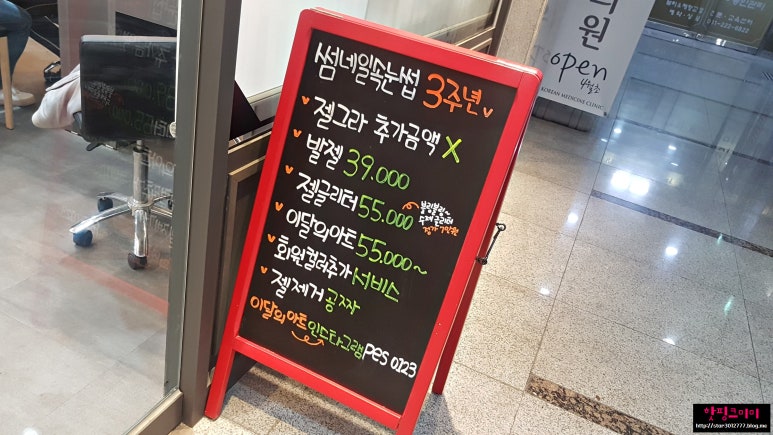 썸네일속눈썹 3주년
젤그라 추가금액 X
발젤 39.000
젤글리터 55.000
블링블링~
두께글리터
정가 7만원
이달의아트 55.000~
회원컬러추가 서비스
젤제거 공짜
이달의아트 인스타그램 pes 0123
의원
open
4월초
KOREAN MEDICINE CLINIC
핫핑크미미
http://star3012777.blog.me